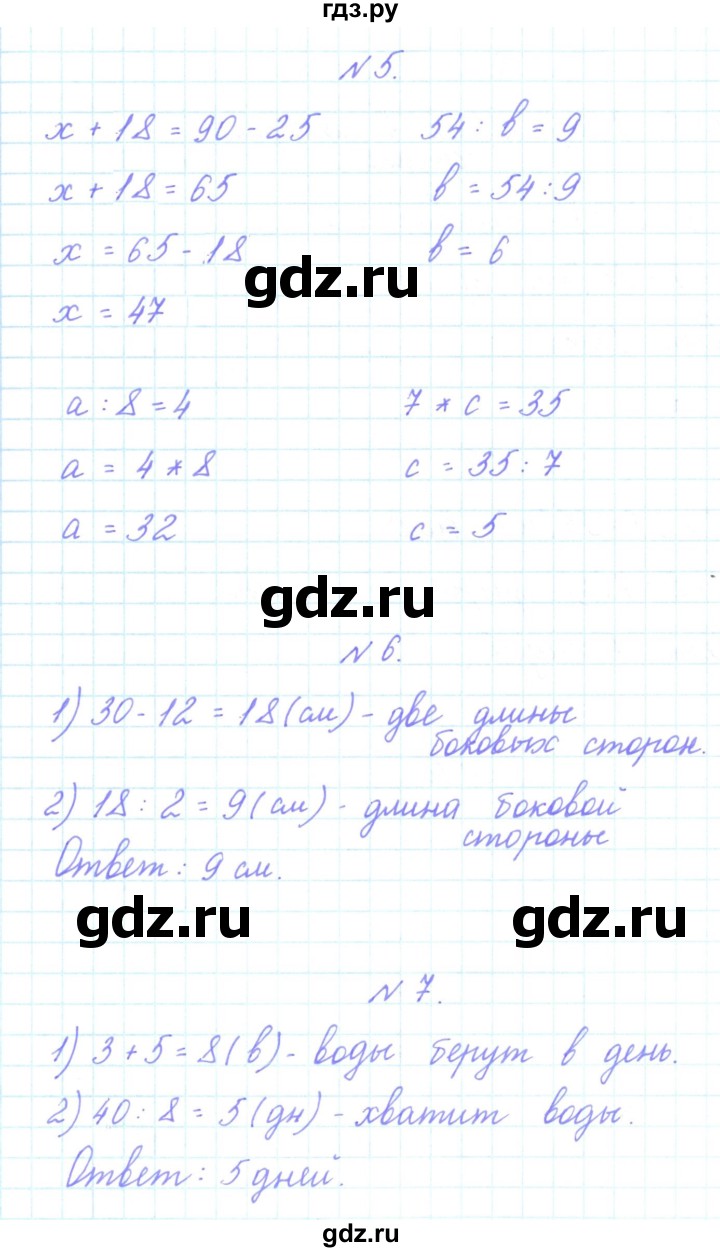 гдз.ру
N 5.
x + 18 = 90 - 25
x + 18 = 65
x = 65 - 18
x = 47
54 : в = 9
в = 54 : 9
в = 6
gdz.ru
a : 8 = 4
a = 4 * 8
a = 32
7 * c = 35
c = 35 : 7
c = 5
gdz.ru
N 6.
1) 30 - 12 = 18 (см) - две длины
боковых сторон.
2) 18 : 2 = 9 (см) - длина боковой
стороны
Ответ: 9 см.
gdz.ru
gdz.ru
N 7.
1) 3 + 5 = 8 (в) - воды берут в день.
2) 40 : 8 = 5 (дн) - хватит воды.
Ответ: 5 дней.
gdz.ru